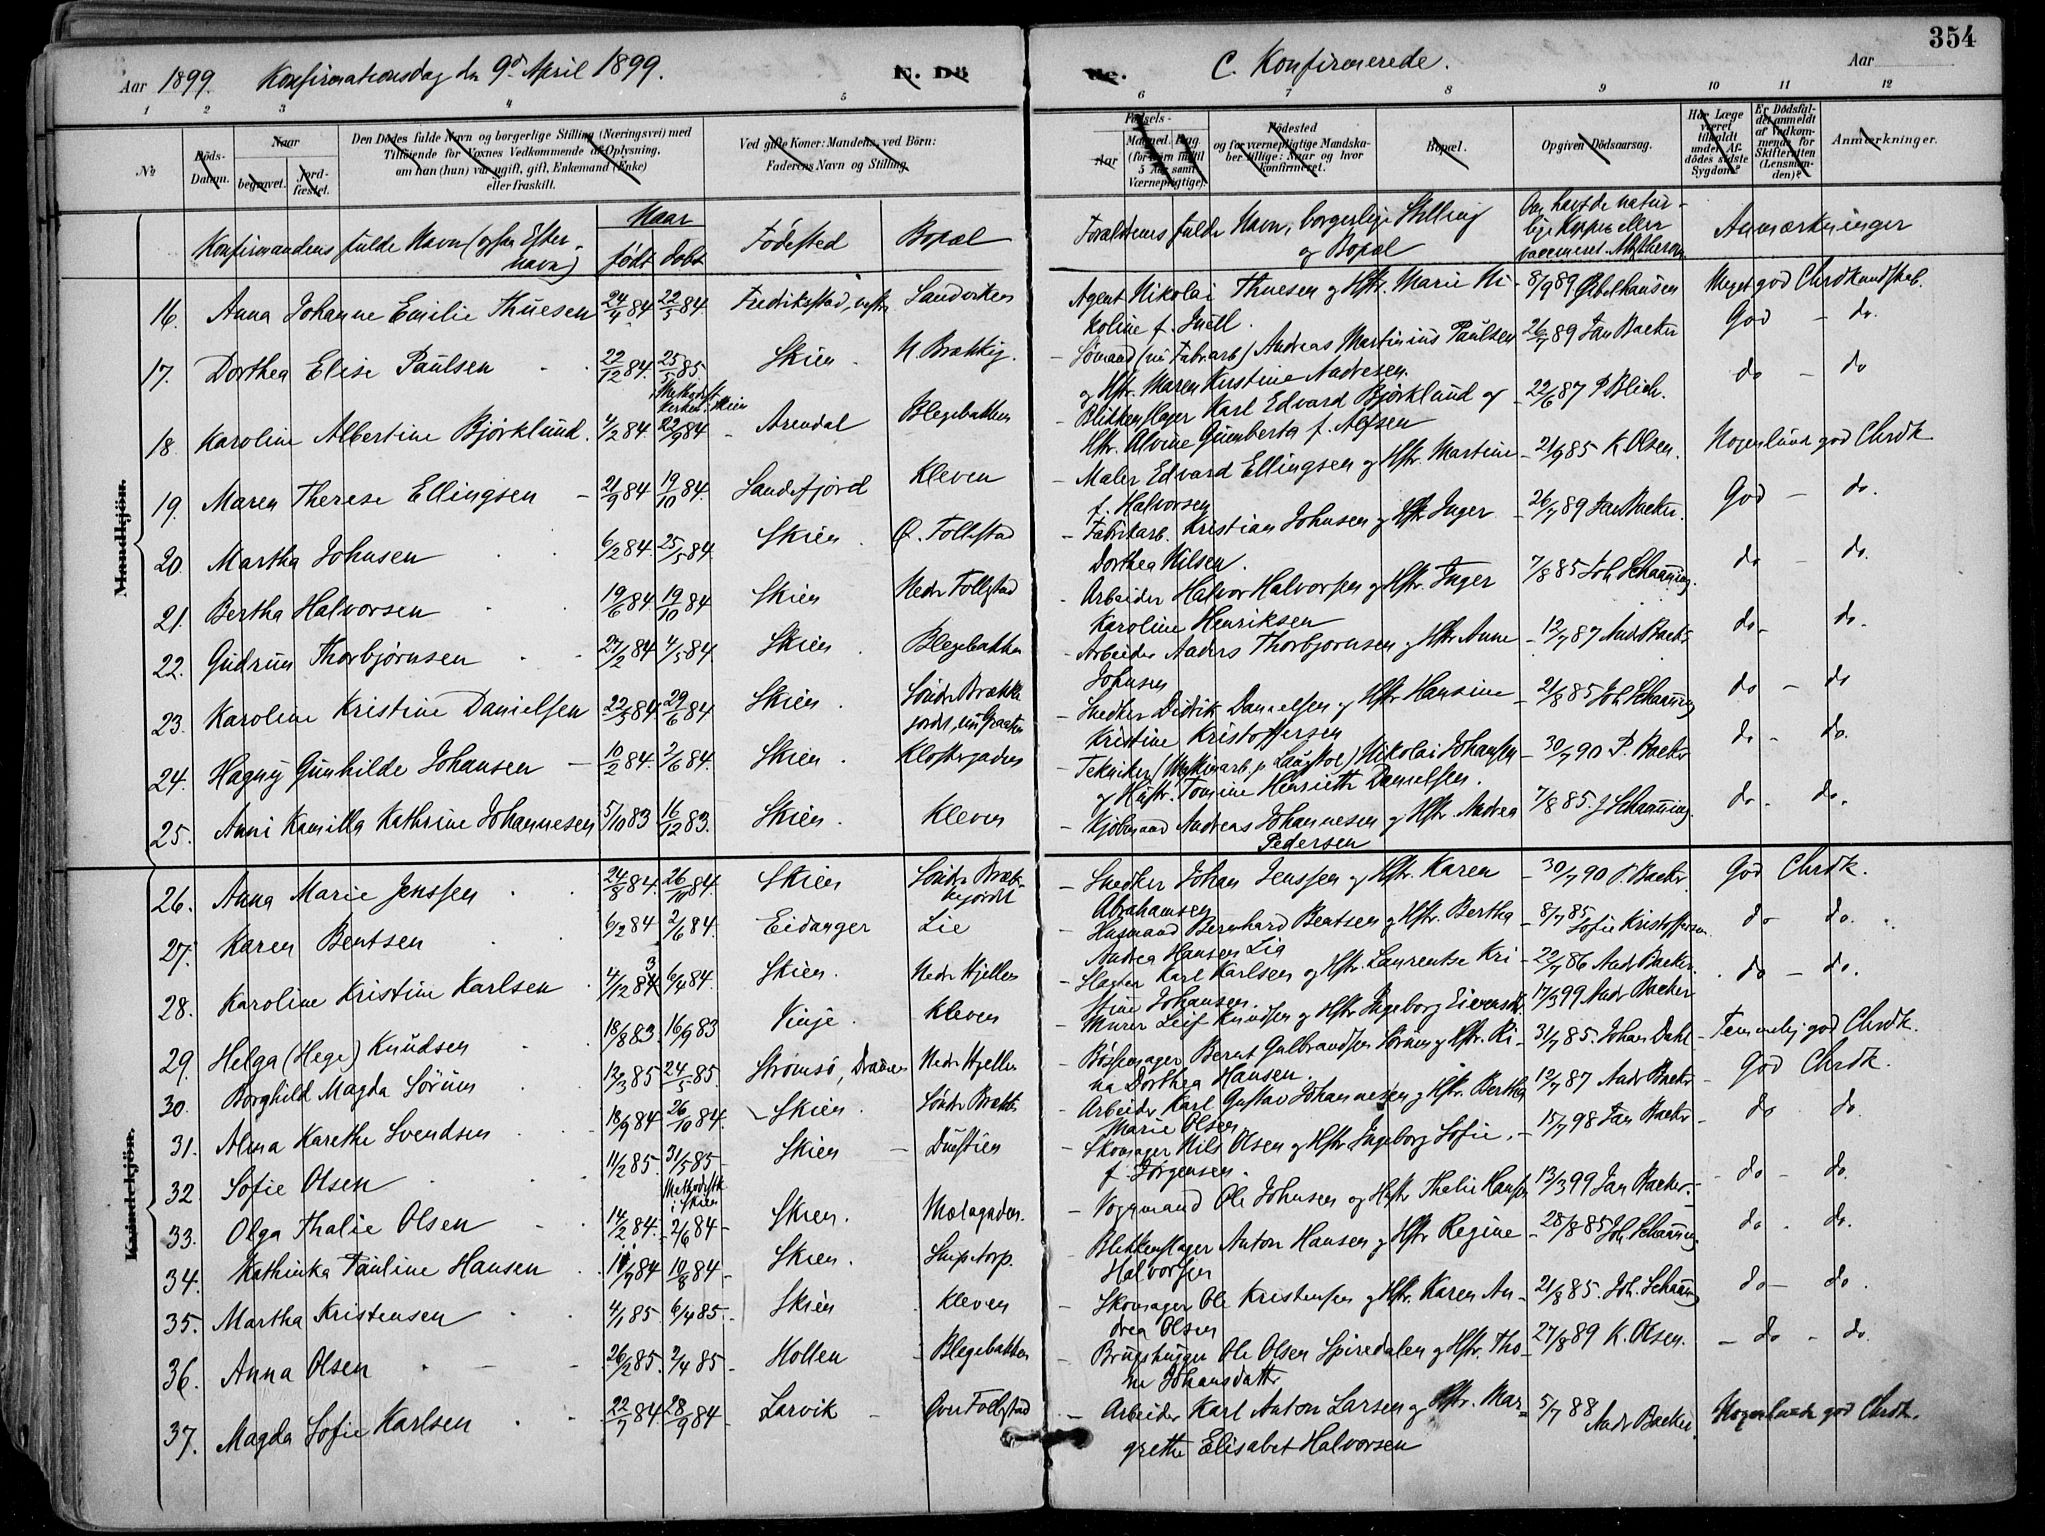 354
Aar 1899. Konfirmationsdag den 9de April 1899. E. Dö
de. C. Konfirmerede. Aar
1 2 3 4 5
6 7 8 9 10 11 12
No
Döds-Datum.
Naar
begravet. Jord-fæstet.
Den Dödes fulde Navn og borgerlige Stilling (Næringsvei) med
Tilföiende for Voxnes Vedkommende af Oplysning,
om han (hun) var ugift, gift, Enkemand (Enke)
eller fraskilt.
Ved gifte Koner: Mandens, ved Börn:
Faderens Navn og Stilling.
Födsels-
Aar Maaned. Dag
(for Börn indtil
5 Aar samt
Værnepligtige).
Födested
og for værnepligtige Mandska-
ber tillige: Naar og hvor
konfirmeret.
Bopæl.
Opgiven Dödsaarsag.
Har Læge
været
tilkaldt
under Af-
dödes sidste
Sygdom?
Er Dödsfal-
det anmeldt
af Vedkom-
mende for
Skifteretten
(Lensman-
den)?
Anmærkninger.
Mandkjön.
Kvindekjön.
Konfirmandens fulde Navn (ogsaa Efter-
navn)
Naar
født døbt
Fødested
Bopæl
Forældrenes fulde Navn, borgerlige Stilling
og Bopæl
Om havt de natur-
lige Kopper eller
vaccineret. Attesteren
Anmærkninger
16. Anna Johanne Emilie Thuesen 24/4 84 22/5 84. Fredrikstad, vestre Sandviken Agent Nikolai Thuesen og Hstr. Marie Ni- 8/9 89 Meget god Chrdkundskab.
koline f. Juell.
17. Dorthea Elise Paulsen 22/12 84. 25/5 85 Skien N. Brekkeg. Sømand (nu Fabrarb.) Andreas Martinius Paulsen 26/7 89 Jan Backer God - do.
Methodist-
kirken i Skien
og Hstr. Maren Kirstine Andresen.
18. Karoline Albertine Bjørklund. 4/2 84 22/9 84 - Arendal Blegebakken Blikkenslager Karl Edvard Bjørklund og 22/6 87 P Blich. do - do
Hstr. Alvine Gumberta f.
19. Maren Therese Ellingsen 21/9 84 19/10 84. Sandefjord Kleven Maler Edvard Ellingsen og Hstr. Martine 21/9 85 K Olsen. Nogenlunde god Chrdk
f. Halvorsen
20. Martha Johnsen 6/2 84. 25/5 84. Skien. Ø. Follestad Fabrikarb. Kristian Johnsen og Hstr Inger 26/7 89 Jan Backer. God - do.
Dorthea Nilsen.
21. Bertha Halvorsen 19/6 84 19/10 84 Skien Nedre Follestad Arbeider Halvor Halvorsen og Hstr. Inger 7/8 85 Joh Schaaning. do - do.
Karoline Henriksen
22. Gudrun Thorbjørnsen 27/2 84 4/5 84 Skien Blegebakken Arbeider Anders Thorbjørnsen og Hstr Anne 12/7 87 Andr Backer do - do.
Johnsen
23. Karoline Kristine Danielsen 22/5 84 29/6 84 Skien. Søndre Brække
jordet, nu Graaten Snedker Didrik Danielsen og Hstr. Hansine 21/8 85 Joh Schaaning do - do
Kristine Kristoffersen
24. Hagny Gunhilde Johansen 10/2 84. 2/6 84. Skien. Klostergaden Tekniker (Maskinarb. p. Laugstol) Nikolai Johansen 30/7 90 P. Backer do - do.
og Hustr. Tomine Henriette Danielsen.
25. Anni Kamilla Kathrine Johannesen 5/10 83 16/12 83. Skien. Kleven Kjøbmand Andreas Johannesen og Hstr. Andrea 7/8 85. J Schaaning. do. do.
Pedersen
26. Anna Marie Jenssen 24/8 84. 26/10 84. Skien Søndre Bræk-
kejordet Snedker Johan Jenssen og Hstr. Karen 30/7 90 P. Backer God Chrdk.
Abrahamsen
27. Karen Bentsen 6/2 84 2/6 84. Eidanger Lie Husmand Bernhard Bentsen og Hstr. Bertha 8/7 85 Sofie Kristoffersen do - do.
Andrea Hansen Lia
28. Karoline Kristine Karlsen 4/12 84 3 6/4 84. Skien. Nedre Hjellen Slagter Karl Karlsen og Hstr. Laurentse Kri- 22/7 86 Andr Backer. do - do.
stine Johansen.
29. Helga (Hege) Knudsen 18/8 83 16/9 83 Vinje. Kleven Murer Leif Knudsen og Hstr Ingeborg Eivensdtr. 17/3 99 Andr Backer
30. Borghild Magda Sørum 12/3 85 24/5 85. Strømsø, Drammen Nedre Hjellen Bøssemager Bernt Gulbrandsen Sørum og Hstr. Ri- 31/7 85. Johan Dahl Temmelig god Chrdk.
na Dorthea Hansen.
31. Alma Karethe Svendsen 18/9 84 26/10 84. Skien. Søndre Brække Arbeider Karl Gustav Johannesen og Hstr. Bertha 12/7 87 Andr Backer God Chrdk.
Marie Olsen
32. Sofie Olsen 11/2 85. 31/5 85 Skien Duestien Skomager Nils Olsen og Hstr Ingeborg Sofie 15/7 98 Jan Backer do do.
f. Jørgensen.
Methodistk
i Skien
33. Olga Thalie Olsen 14/2 84. 2/6 84 Skien. Mælagaden. Vognmand Ole Johnsen og Hstr Thalie Hansen 13/3 99 Jan Backer. do - do.
34. Kathinka Pauline Hansen 11/7 84 10/8 84 Skien. Snipetorp. Blikkenslager Anton Hansen og Hstr Regine 28/8 85 Joh Schaaning do. do.
Halvorsen
35. Martha Kristensen 4/1 85. 6/4 85. Skien Kleven Skomager Ole Kristensen og Hstr. Karen An- 21/8 85. Joh. Schaaning do - do.
drea Olsen
36. Anna Olsen 26/2 85. 2/4 85 Hollen Blegebakken Brugshugger Ole Olsen Spiredalen og Hstr. Tho- 27/8 89 K. Olsen. - do - do.
ne Johansdatter
37. Magda Sofie Karlsen 22/7 84 28/9 84 Larvik Øvre Follestad Arbeider Karl Anton Larsen og Hstr. Mar- 5/7 88 Andr Backer. Nogenlunde god Chrdk.
grethe Elisabet Halvorsen